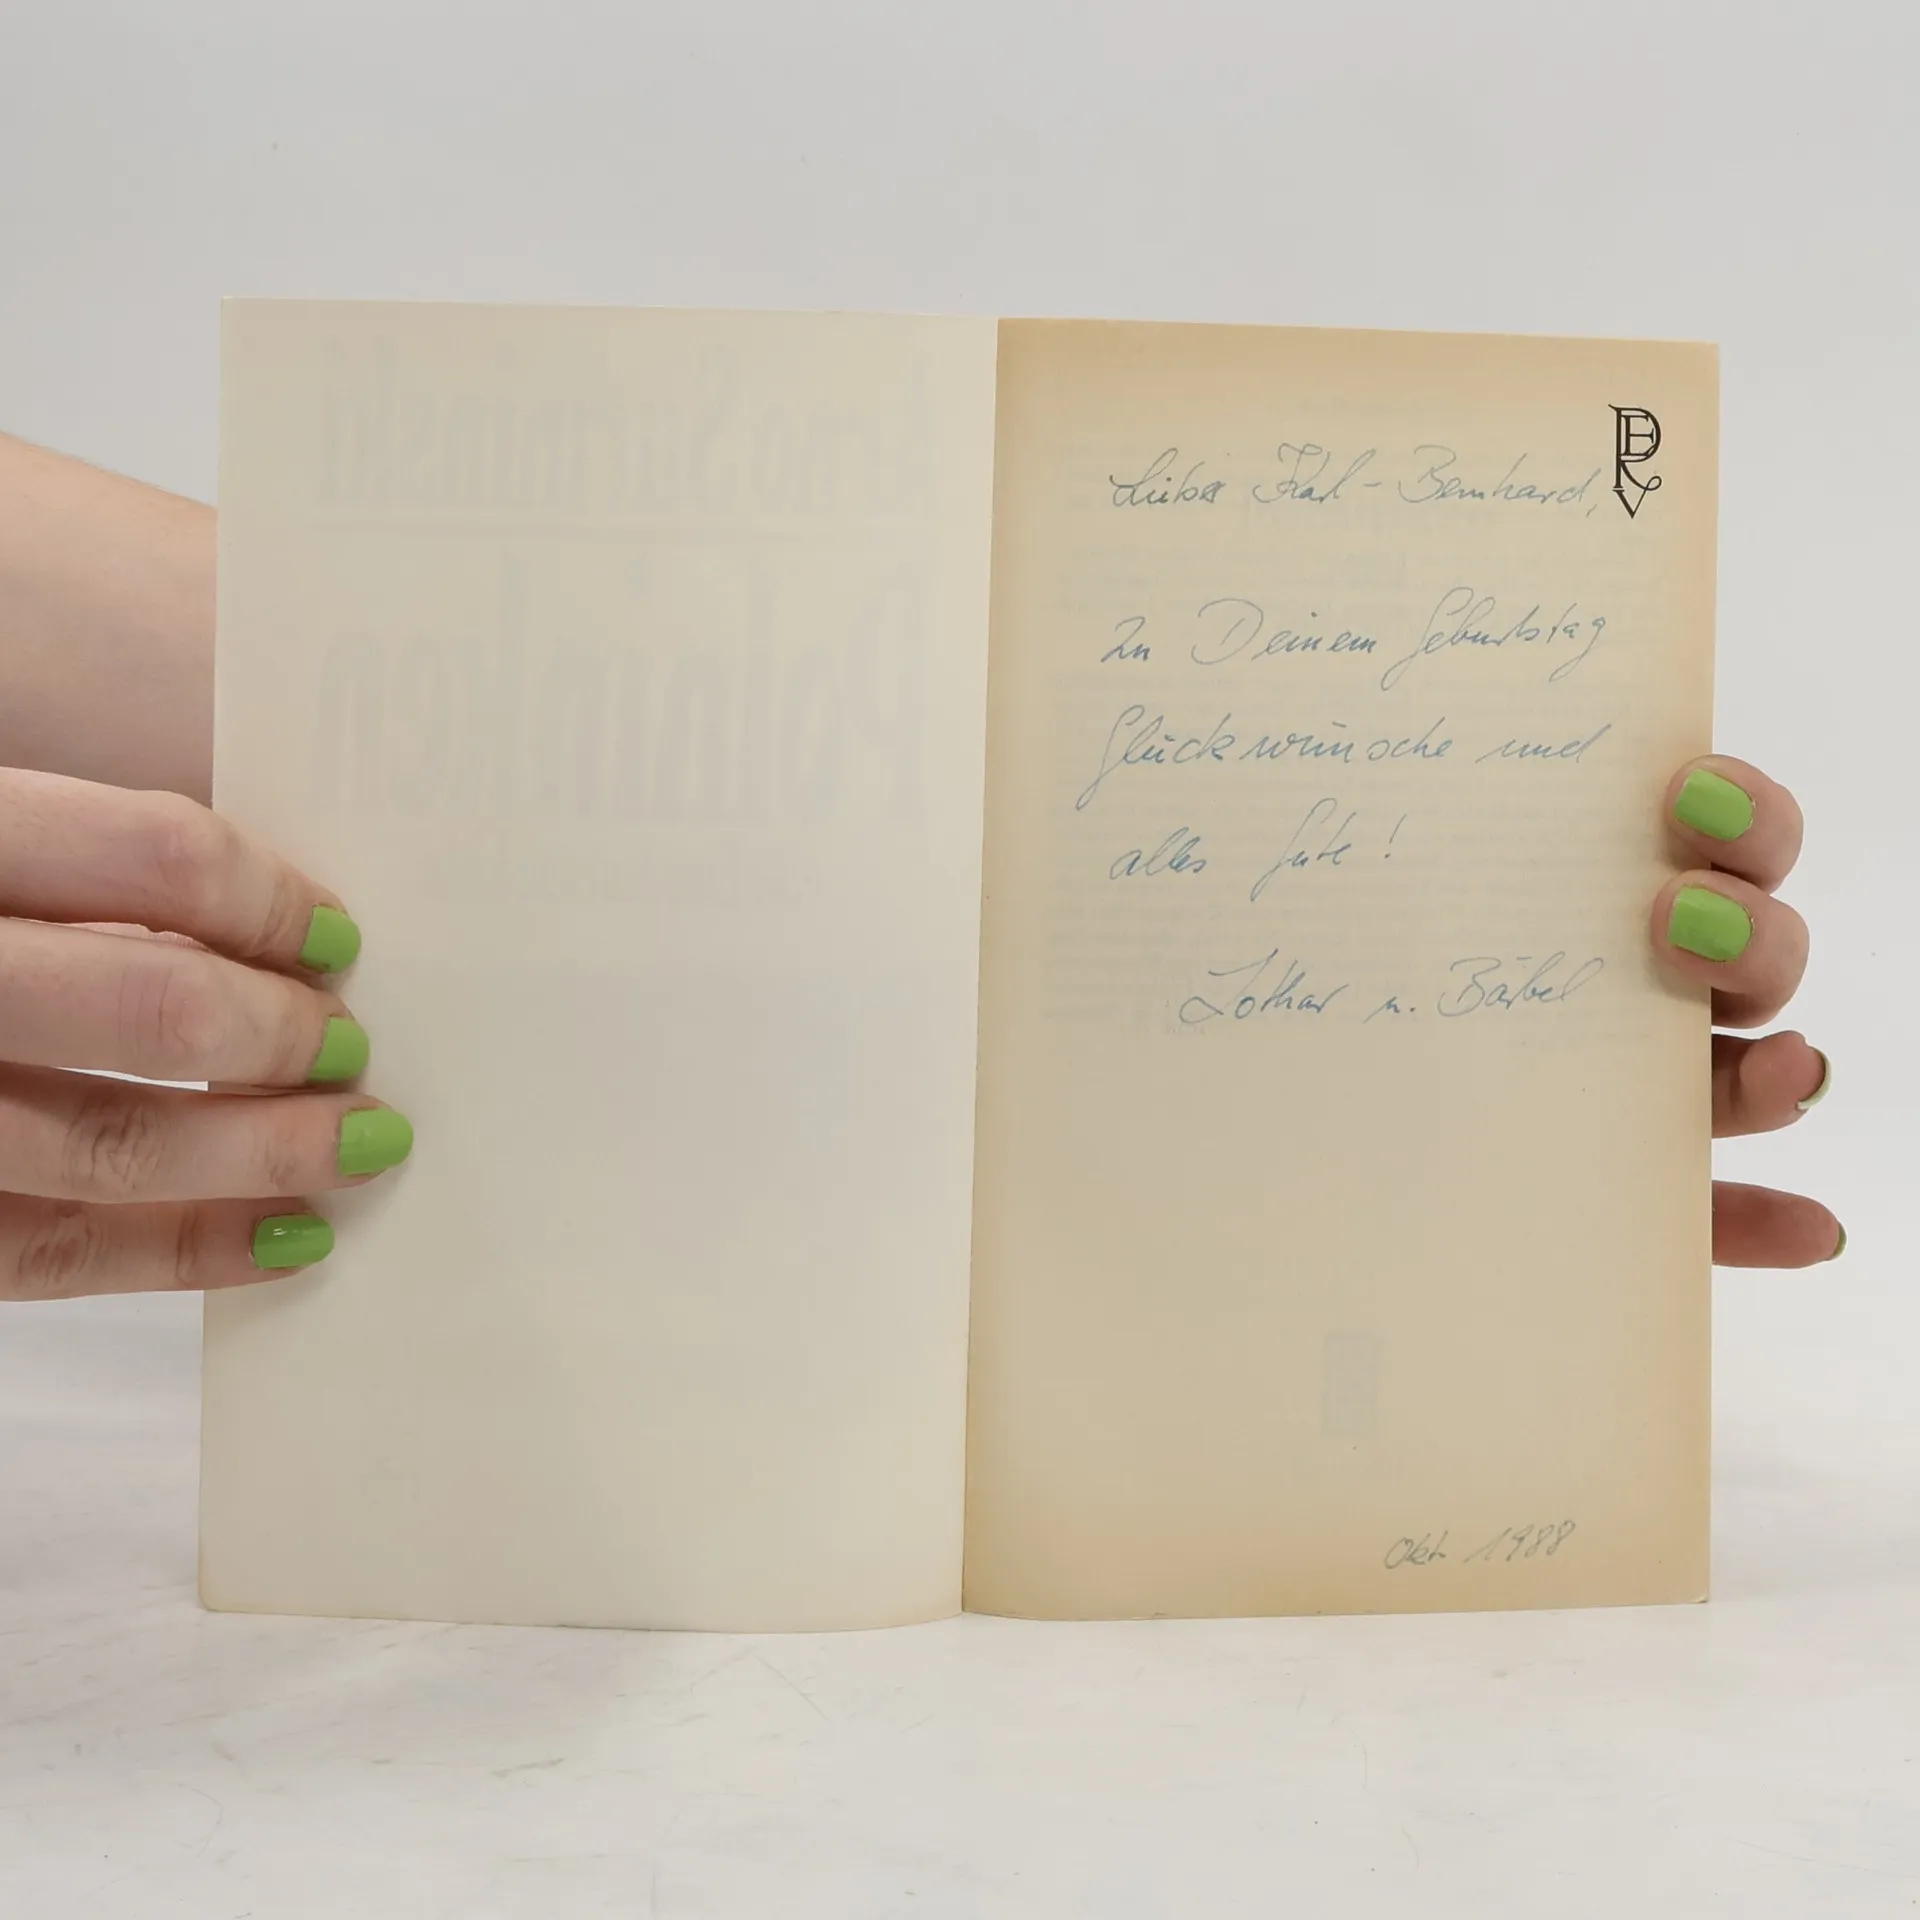 Arno Surminski
Polninken
Lieber Karl-Bernhard,
Zu Deinem Geburtstag
Glückwünsche und
alles Gute!
Lothar u. Bärbel
Okt. 1988